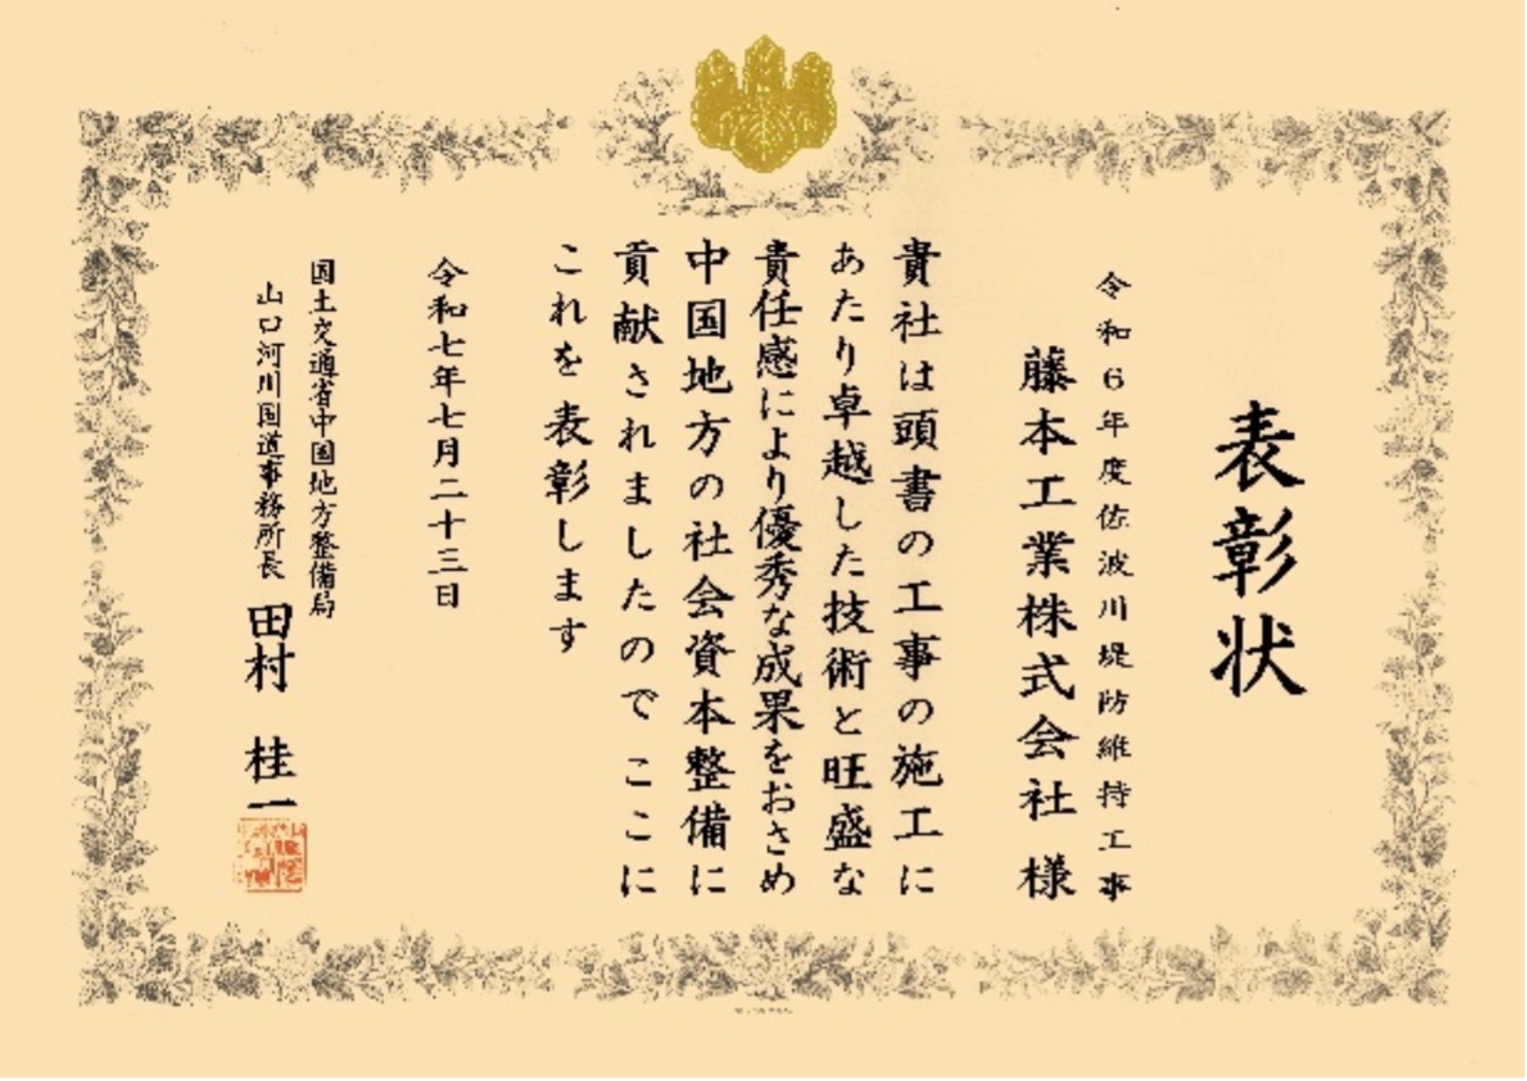 表彰状
令和6年度佐波川堤防維持工事
藤本工業株式会社 様
貴社は頭書の工事の施工に
あたり卓越した技術と旺盛な
責任感により優秀な成果をおさめ
中国地方の社会資本整備に
貢献されましたので ここに
これを表彰します
令和七年七月二十三日
国土交通省中国地方整備局
山口河川国道事務所長 田村 桂一